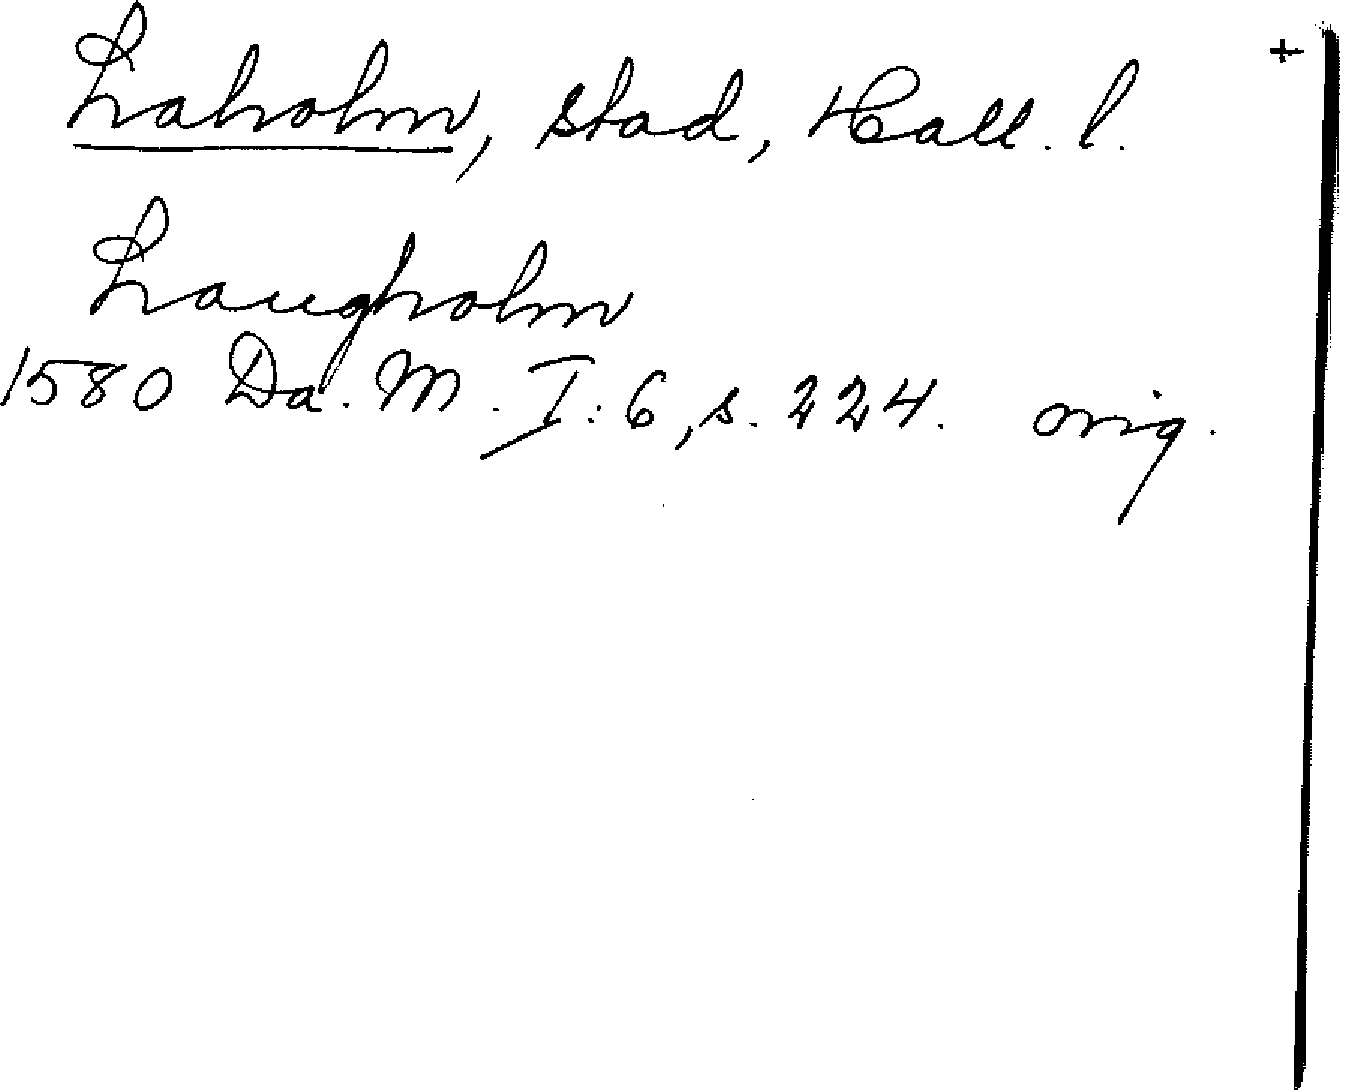 Laholm, stad, Hall. l. +
Laugholm
1580 Da. M. I: 6, s. 224. orig.